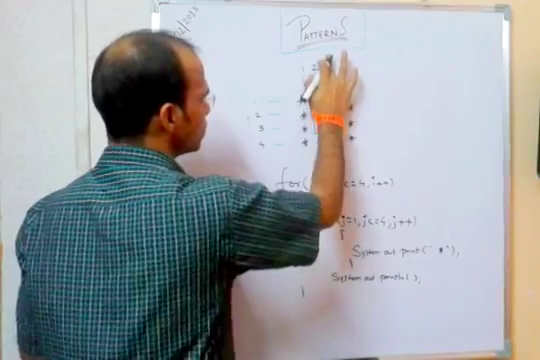 2013
PATTERNS
1 2
1 *
2 * *
3 * *
4 * *
for( <=4, i++)
(j=1, j<=4, j++)
{
System out print(" * "),
}
System out println( ),
}